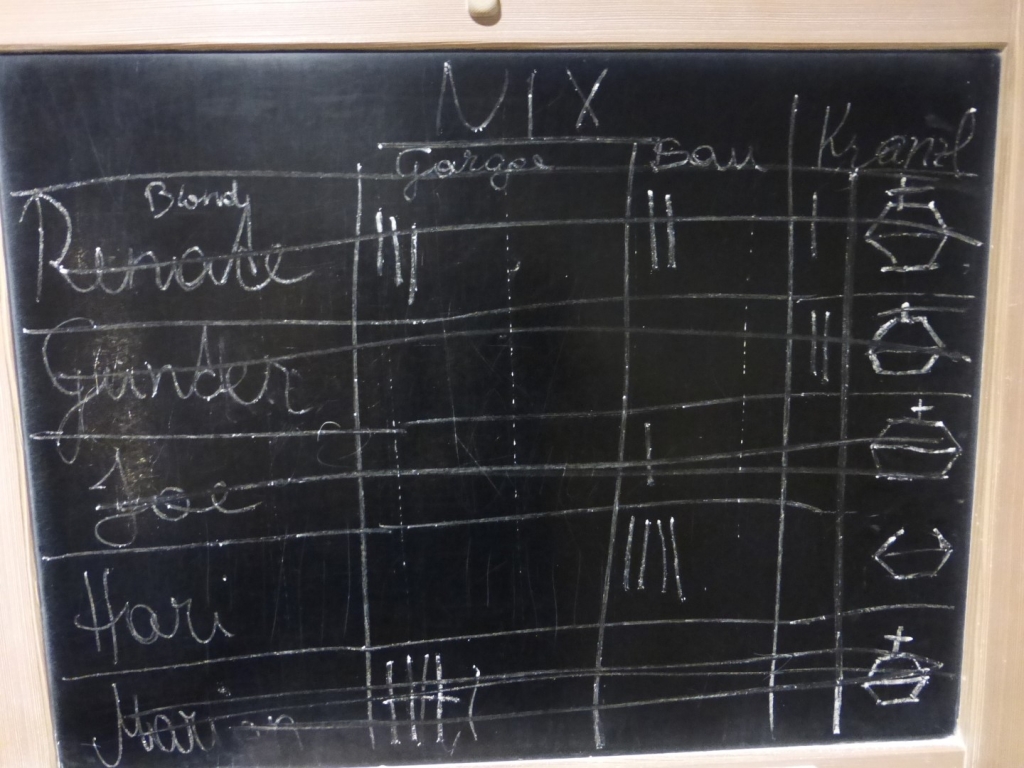 NIX
Garage Bau Kranzl
Blondy
Renate
Günter
Joe
Hari